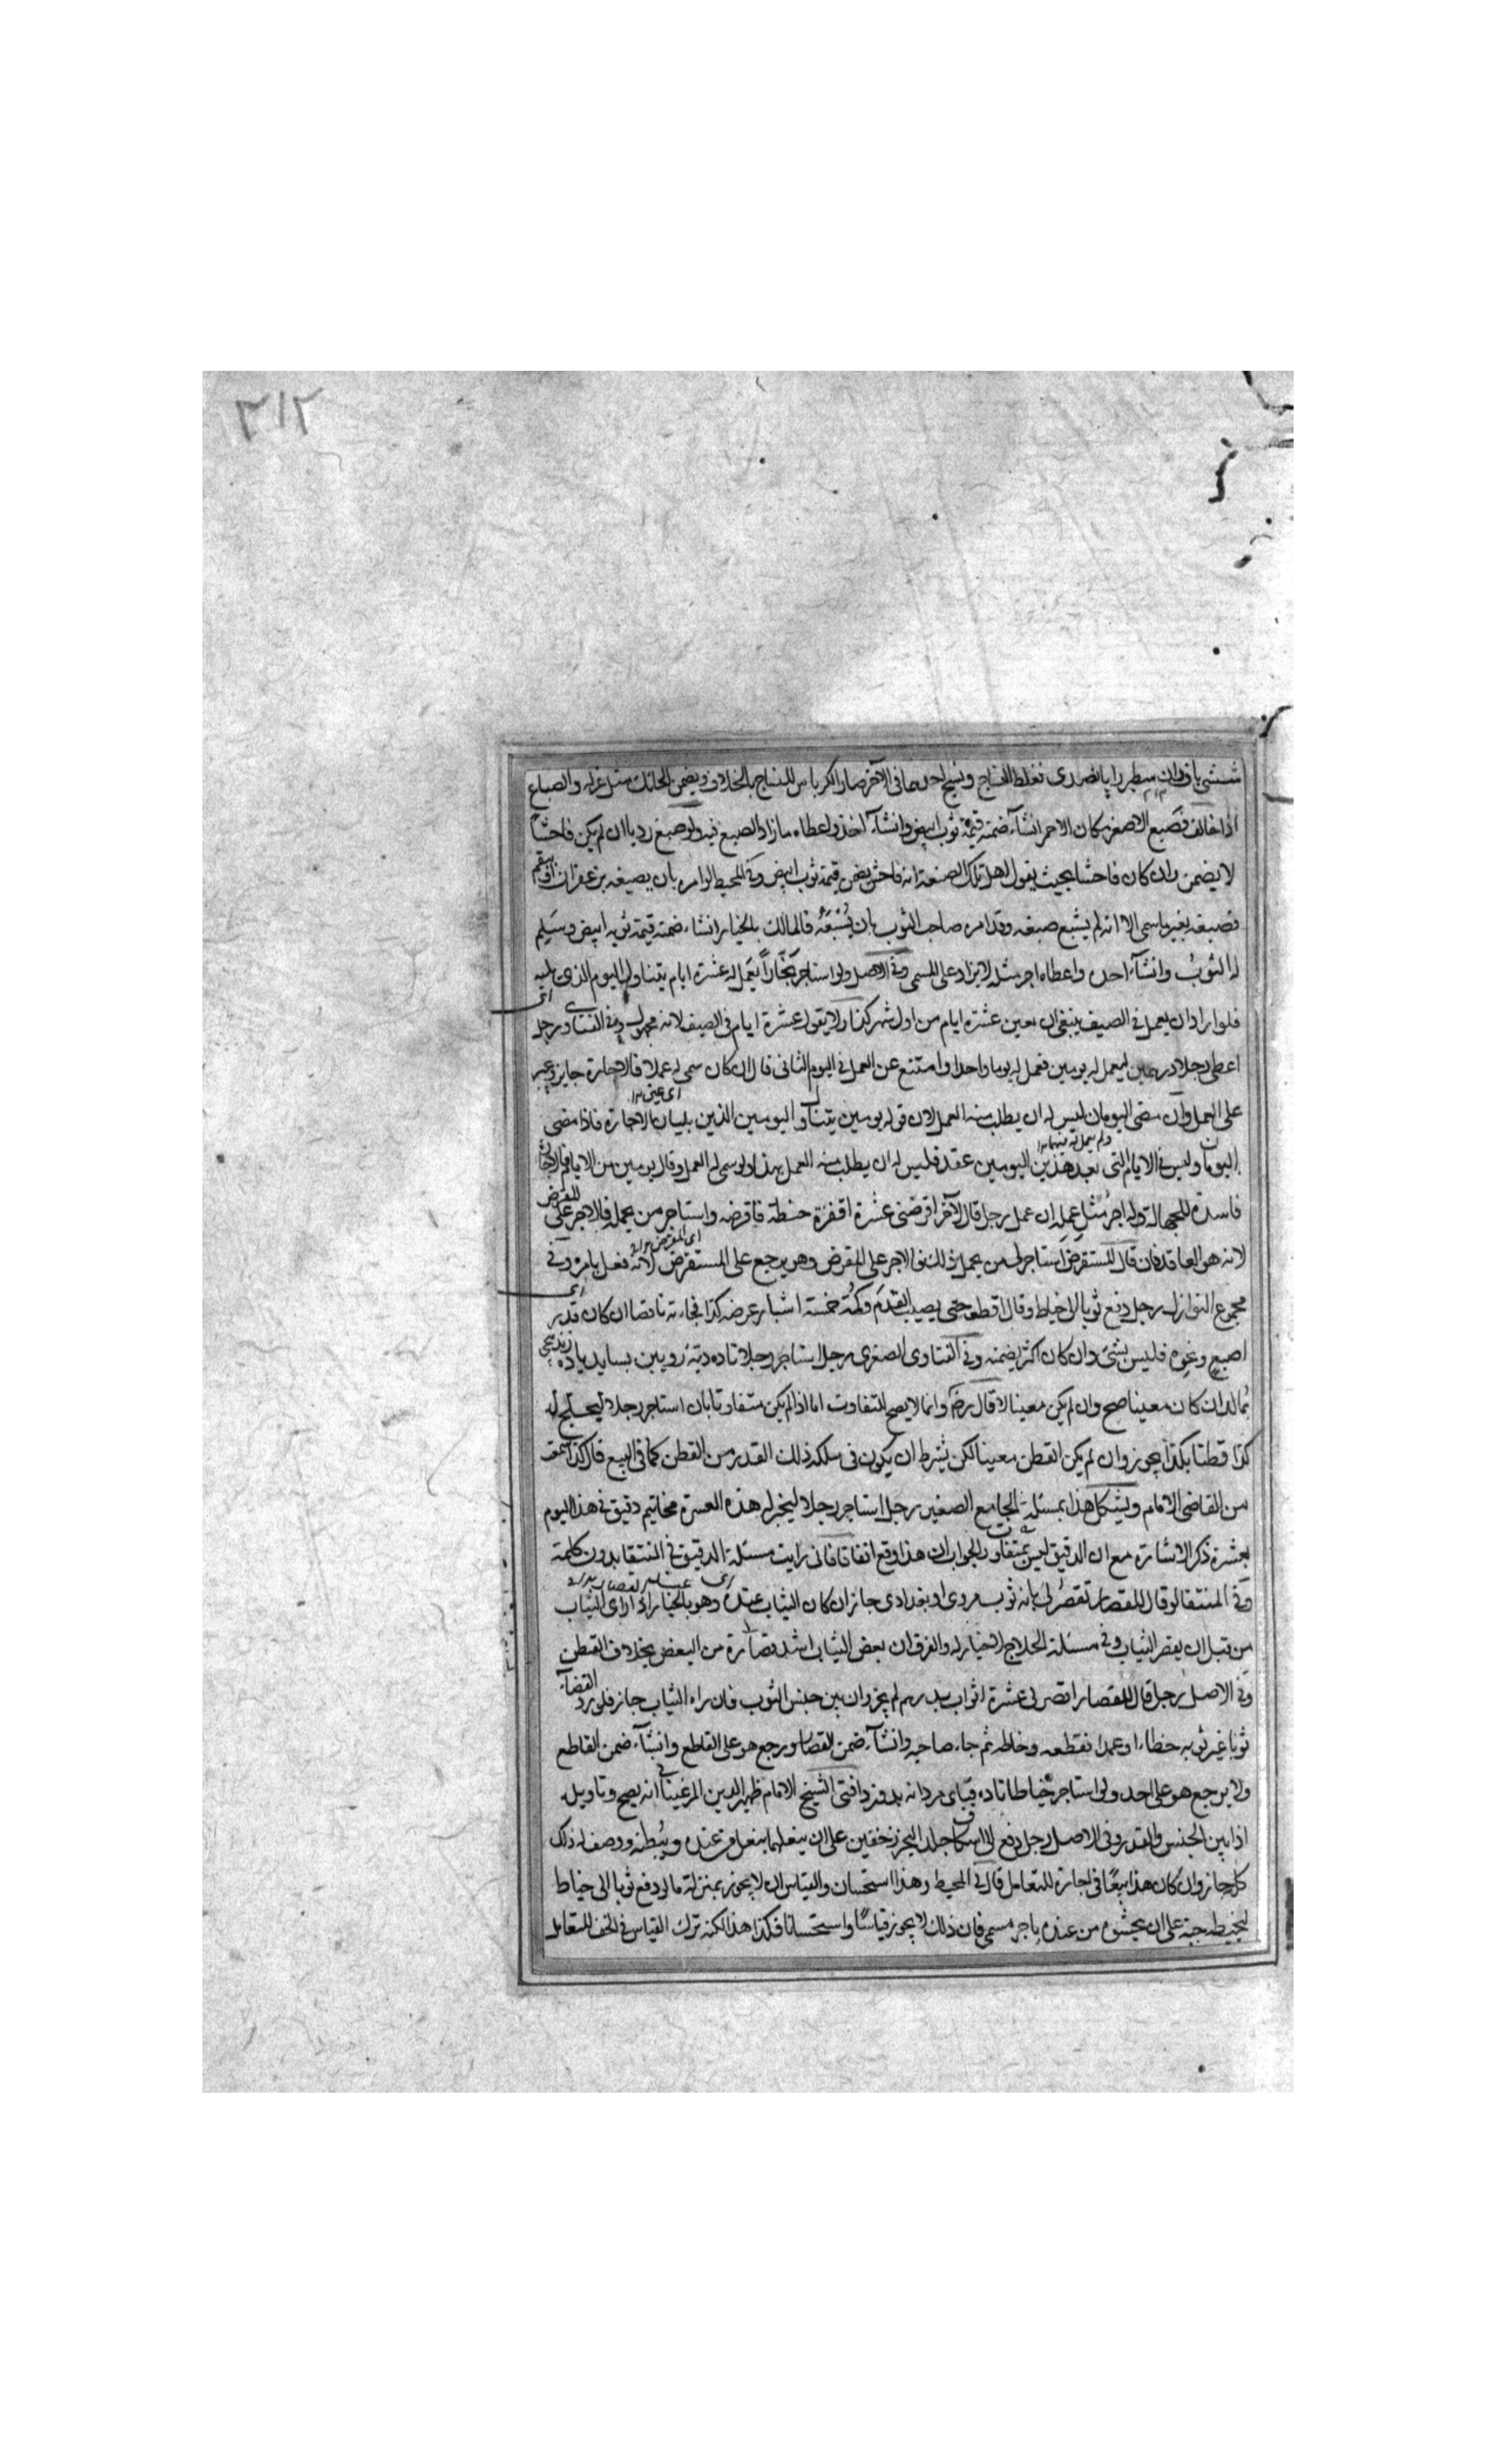 ٣١٢
اذا خالف فصبغ الاصفر مكان الاحمر انشآء ضمنه قيمة ثوب ابيض وانشآء اخذ واعطاه ما زاد الصبغ فيه ولو صبغ رديا ان لم يكن فاحشاً
لا يضمن وان كان فاحشا بحيث يقول اهل تلك الصنعة انه فاحش يضمن قيمة ثوب ابيض وفى المحيط لو امره بان يصبغه بزعفران او بقم
فصبغه بغير ما سمى الا انه لم يشبع صبغه وقد امره صاحب الثوب بان يُشْبَعَه فالمالك بالخيار انشاء ضمنه قيمة ثوبه ابيض وسَيلم
له الثوبُ وانشآء اخذه واعطاه اجر مثله لا يزاد على المسمى وفى الاصل ولو استاجر نجّاراً يعمل له عشرة ايام يتناول اليوم الذى يليه
فلو اراد ان يعمل فى الصيف ينبغى ان يعين عشرة ايام من اول شهر كذا ولا يقول عشرة ايام فى الصيف لانه مجهول وفى الفتاوى رجل
اعطى رجلا درهمين ليعمل له يومين فعمل له يوما واحدا وامتنع عن العمل فى اليوم الثانى قال ان كان سمى له عملا فالاجارة جايزة ويجبر
على العمل وان مضى اليومان ليس له ان يطلب منه العمل لان قوله يومين يتناول اليومين الذين يليان الاجارة فاذا مضى
اليومان وليس فى الايام التى بعد هذين اليومين عقد فليس له ان يطلب منه العمل بهذا ولو سمى له العمل وقال يومين من الايام فالاجارة
ولم يعمل له فيهما
فاسدة للجهالة وله اجر مثلِ عمله ان عمل رجل قال لآخر اقرضنى عشرة اقفزة حنطة فاقرضه واستاجر من يحمله فالاجر على المقرض
لانه هو العاقد فان قال المستقرض استاجر لى من يحمل ذلك فالاجر على المقرض وهو يرجع على المستقرض لانه فعل بامره وفى
مجموع النوازل رجل دفع ثوبا الى خياط وقال اقطعه حتى يصيب القدم وكمّه خمسة اشبار عرضه كذا فجاء به ناقصا ان كان قدر
اصبع ونحوه فليس بشئ وان كان اكثر يضمنه وفى الفتاوى الصغرى رجل استاجر رجلا تاده
بمالد ان كان معينا صح وان لم يكن معينا لا قال رضه وانما لا يصح للتفاوت اما اذا لم يكن متفاوتا بان استاجر رجلا ليحلج له
كذا قطنا بكذا يجوز وان لم يكن القطن معينا لكن يشترط ان يكون فى ملكه ذلك القدر من القطن كما فى البيع قال كذا سمعت
من القاضى الامام ويشكل هذا بمسئلة الجامع الصغير رجل استاجر رجلا ليخبز له هذه العشرة مخاتيم دقيق فى هذا اليوم
بعشرة ذكر الاشارة مع ان الدقيق ليس بمتفاوت والجواب ان هذا وقع اتفاقا فانى رايت مسئلة الدقيق فى المنتقى بدون كلمة
وفى المنتقى لو قال للقصار تقصُر لى مائة ثوب مروى او بغدادى جاز ان كان الثياب عنده وهو بالخيار اذا راى الثياب
من قبل ان يقصر الثياب وفى مسئلة الحلاج لا خيار له والفرق ان بعض الثياب اشد قصارة من البعض بخلاف القطن
وفى الاصل رجل قال للقصار اقصر لى عشرة اثواب بدرهم لم يجز وان بين جنس الثوب فان راه الثياب جاز فلو رد القصار
ثوبا غير ثوبه خطاء او عمدا فقطعه وخاطه ثم جاء صاحبه وانشآء ضمن القصار ورجع هو على القاطع وانشآء ضمن القاطع
ولا يرجع هو على احد ولو استاجر خياطا تاده قباى مردانه بدوزد افتى الشيخ الامام ظهير الدين المرغينانى انه يصح وتاويله
اذا بين الجنس والقدر وفى الاصل رجل دفع الى اسكاف جلدا ليخرز خفين على ان ينعلهما بنعل من عنده ويُبطنه ووصف له ذلك
كله جاز وان كان هذا بيعًا فى اجارة للتعامل قال فى المحيط وهذا استحسان والقياس ان لا يجوز بمنزلة ما لو دفع ثوبا الى خياط
ليخيطه جبة على ان يحشوه من عنده باجر مسمى فان ذلك لا يجوز قياسًا واستحسانا فكذا هذا لكنه ترك القياس فى الخف للتعامل